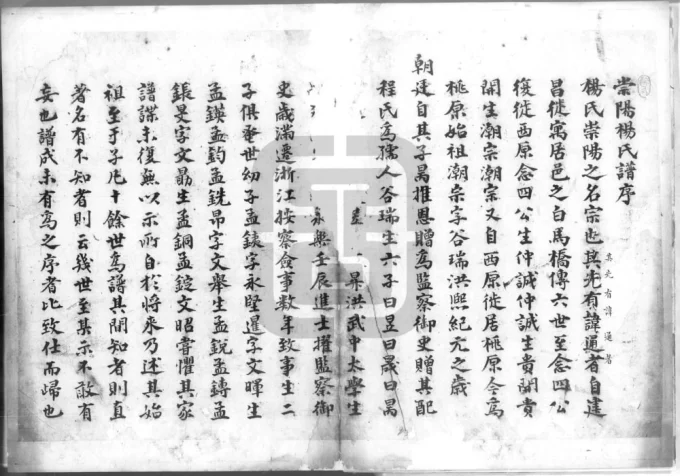 崇陽楊氏譜序
楊氏崇陽之名宗也其先有諱通者自建
昌徙寓居邑之白馬橋傳六世至念四公
復徙西原念四公生仲誠仲誠生貴嗣貴
開生潮宗潮宗又自西原徙居桃原今為
桃原始祖潮宗字谷瑞洪熙紀元之歲
朝廷自其子暠推恩贈為監察御史贈其配
程氏為孺人谷瑞生六子曰昱曰晟曰暠
昇洪武中太學生
永樂壬辰進士擢監察御
史歲滿遷浙江按察僉事數年致事生二
子俱蚤世幼子孟鋏字永堅暹字文暉生
孟鍈孟鈞孟銑昂字文舉生孟銳孟鑄孟
鋹旻字文勗生孟銅孟錠文昭嘗懼其家
譜諜未復無以示所自於將來乃述其始
祖至于子凡十餘世為譜其間知者則直
著名有不知者則云幾世至某示不敢有
妄也譜成未有為之序者比致仕而歸也